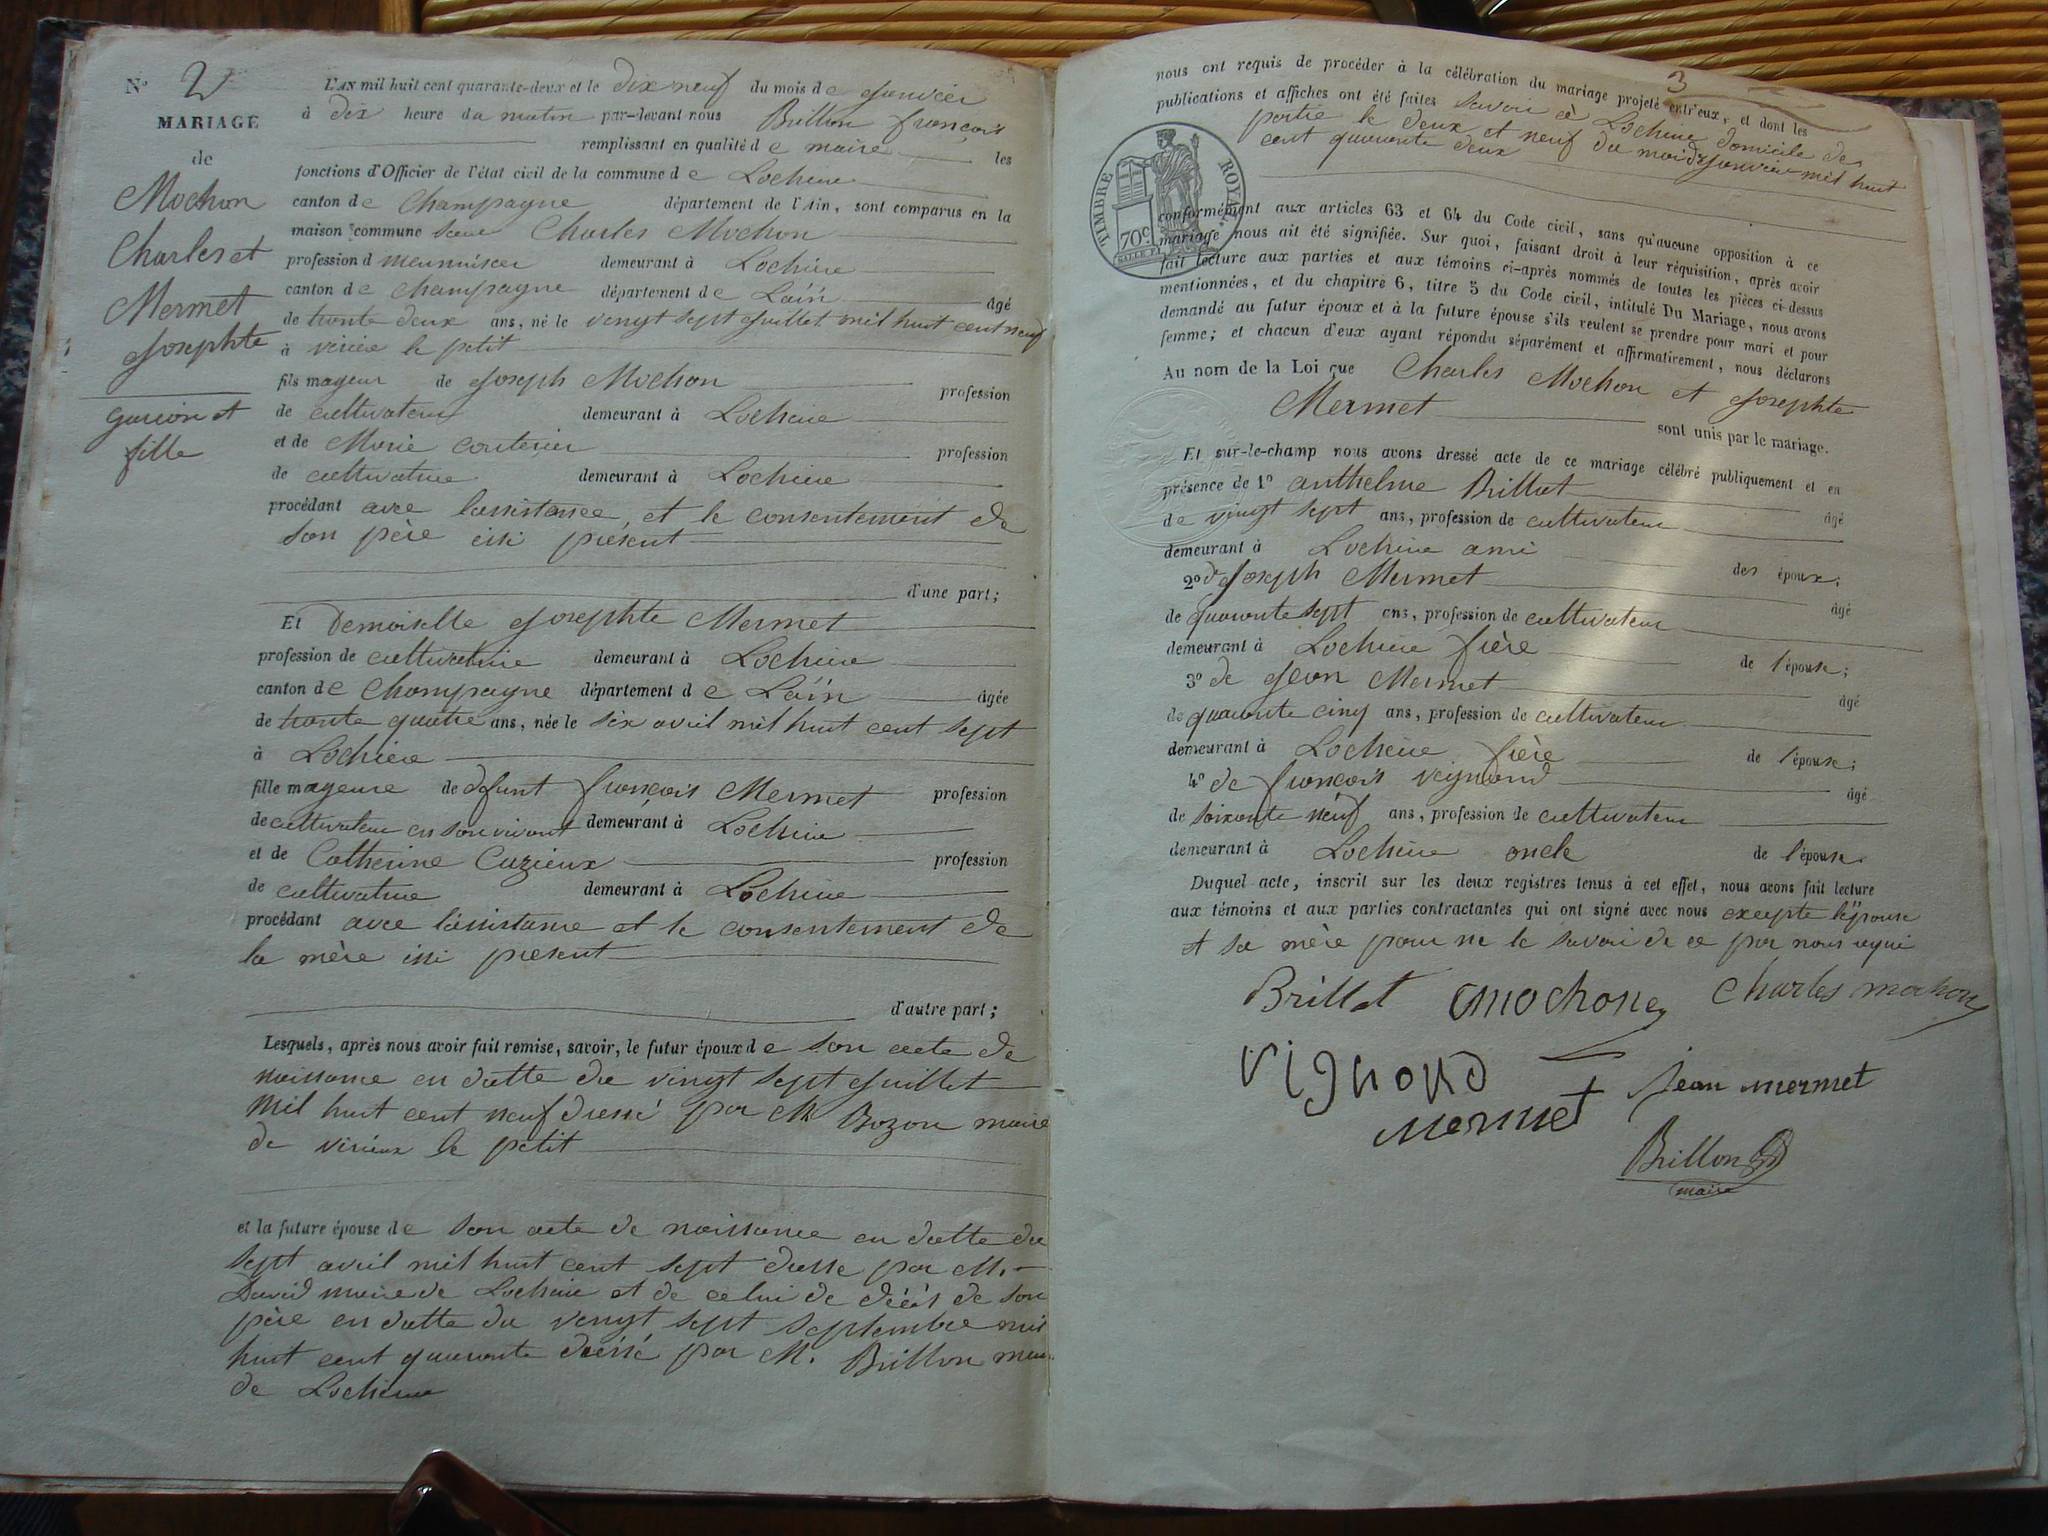 N° 2
MARIAGE
de
Mochon
Charles et
Mermet
Josephte
garçon et
fille
L'AN mil huit cent quarante-deux et le dix neuf du mois de Janvier
à dix heure du matin par-devant nous Brillon françois
remplissant en qualité de maire les
fonctions d'Officier de l'état civil de la commune de Lochieu
canton de Champagne département de l'Ain, sont comparus en la
maison commune Charles Mochon
profession d menuisier demeurant à Lochieu
canton de Champagne département de Laïn âgé
de trente deux ans, né le vingt sept Juillet mil huit cent neuf
à virieu le petit
fils mageur de Joseph Mochon profession
de cultivateur demeurant à Lochieu
et de Marie couturier profession
de cultivatrice demeurant à Lochieu
procédant avec lassistance, et le consentement de
son père issi présent
d'une part;
Et Demoiselle Josephte Mermet
profession de cultivatrice demeurant à Lochieu
canton de Champagne département de Laïn âgée
de trente quatre ans, née le six avril mil huit cent sept
à Lochieu
fille mageure de defunt françois Mermet profession
de cultivateur en son vivant demeurant à Lochieu
et de Catherine Cuzieux profession
de cultivatrice demeurant à Lochieu
procédant avec lassistance et le consentement de
la mère issi present
d'autre part;
Lesquels, après nous avoir fait remise, savoir, le futur époux de son acte de
naissance en datte du vingt sept Juillet
mil huit cent neuf dressé par M Bozon maire
de virieux le petit
et la future épouse de son acte de naissance en datte du
sept avril mil huit cent sept dresse par M.
David maire de Lochieu et de celui de décès de son
père en datte du vengt sept septembre mil
huit cent quarante dressé par M. Brillon
de Lochieu
3
nous ont requis de procéder à la célébration du mariage projeté entr'eux, et dont les
publications et affiches ont été faites savoir à Lochieu domicile des
partie le deux et neuf du mois de Janvier mil huit
cent quarante deux
TIMBRE ROYAL
70c
conformément aux articles 63 et 64 du Code civil, sans qu'aucune opposition à ce
mariage nous ait été signifiée. Sur quoi, faisant droit à leur réquisition, après avoir
fait lecture aux parties et aux témoins ci-après nommés de toutes les pièces ci-dessus
mentionnées, et du chapitre 6, titre 5 du Code civil, intitulé Du Mariage, nous avons
demandé au futur époux et à la future épouse s'ils veulent se prendre pour mari et pour
femme; et chacun d'eux ayant répondu séparément et affirmativement, nous déclarons
Au nom de la Loi que Charles Mochon et Josephte
Mermet sont unis par le mariage.
Et sur-le-champ nous avons dressé acte de ce mariage célébré publiquement et en
présence de 1° anthelme Brillat âgé
de vingt sept ans, profession de cultivateur
demeurant à Lochieu ami des époux;
2° de Joseph Mermet âgé
de quarante sept ans, profession de cultivateur
demeurant à Lochieu frère de l'épouse;
3° de Jean Mermet âgé
de quarante cinq ans, profession de cultivateur
demeurant à Lochieu frère de l'épouse;
4° de françois vignond âgé
de soixante neuf ans, profession de cultivateur
demeurant à Lochieu oncle de l'épouse.
Duquel acte, inscrit sur les deux registres tenus à cet effet, nous avons fait lecture
aux témoins et aux parties contractantes qui ont signé avec nous excepte lépouse
et sa mère pour ne le savoir de ce par nous requi
Brillat Mochon Charles mochon
vignond Jean mermet
Mermet
Brillon
maire